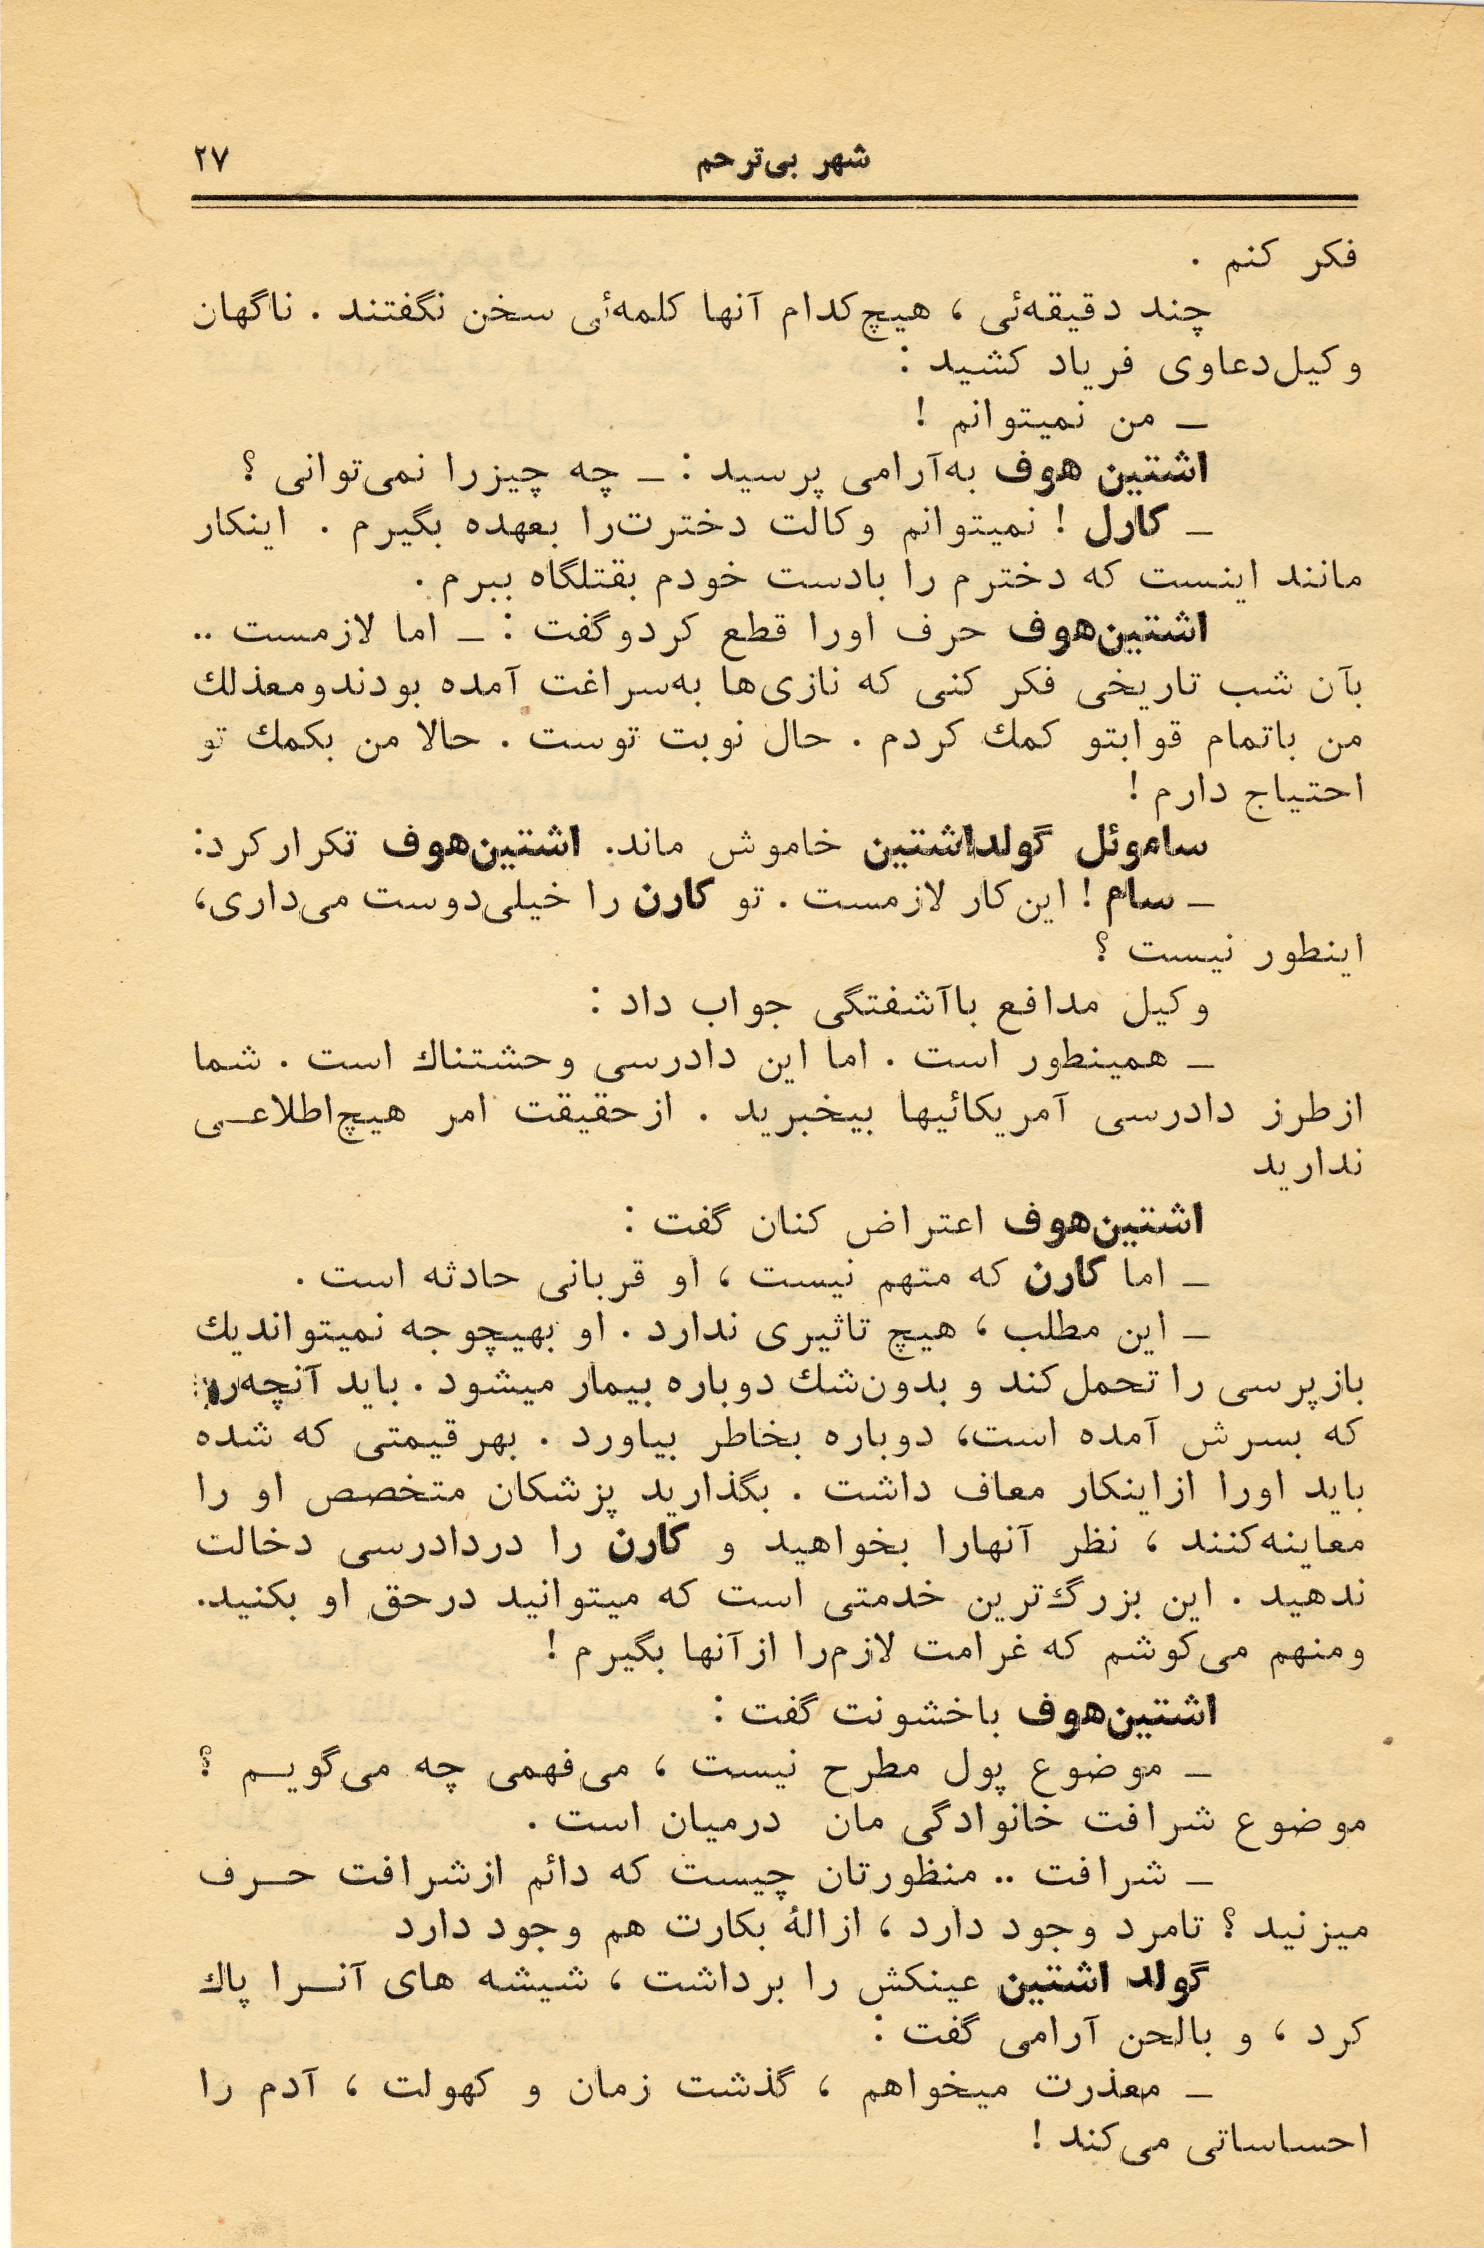 شهر بی‌ترحم
۲۷
فکر کنم .
چند دقیقه‌ئی ، هیچ‌کدام آنها کلمه‌ئی سخن نگفتند . ناگهان
وکیل‌دعاوی فریاد کشید :
ـ من نمیتوانم !
اشتین هوف به‌آرامی پرسید : ـ چه چیزرا نمی‌توانی ؟
ـ کارل ! نمیتوانم وکالت دخترت‌را بعهده بگیرم . اینکار
مانند اینست که دخترم را بادست خودم بقتلگاه ببرم .
اشتین‌هوف حرف اورا قطع کردوگفت : ـ اما لازمست ..
بآن شب تاریخی فکر کنی که نازی‌ها به‌سراغت آمده بودندومعذلك
من باتمام قوابتو کمك کردم . حال نوبت توست . حالا من بکمك تو
احتیاج دارم !
ساموئل گولداشتین خاموش ماند. اشتین‌هوف تکرارکرد:
ـ سام ! این‌کار لازمست . تو کارن را خیلی‌دوست می‌داری،
اینطور نیست ؟
وکیل مدافع باآشفتگی جواب داد :
ـ همینطور است . اما این دادرسی وحشتناك است . شما
ازطرز دادرسی آمریکائیها بیخبرید . ازحقیقت امر هیچ‌اطلاعـی
ندارید
اشتین‌هوف اعتراض کنان گفت :
ـ اما کارن که متهم نیست ، او قربانی حادثه است .
ـ این مطلب ، هیچ تاثیری ندارد . او بهیچوجه نمیتواندیك
بازپرسی را تحمل‌کند و بدون‌شك دوباره بیمار میشود . باید آنچه‌را
که بسرش آمده است، دوباره بخاطر بیاورد . بهرقیمتی که شده
باید اورا ازاینکار معاف داشت . بگذارید پزشکان متخصص او را
معاینه‌کنند ، نظر آنهارا بخواهید و کارن را دردادرسی دخالت
ندهید . این بزرگ‌ترین خدمتی است که میتوانید درحق او بکنید.
ومنهم می‌کوشم که غرامت لازم‌را ازآنها بگیرم !
اشتین‌هوف باخشونت گفت :
ـ موضوع پول مطرح نیست ، می‌فهمی چه می‌گویـم ؟
موضوع شرافت خانوادگی مان درمیان است .
ـ شرافت .. منظورتان چیست که دائم ازشرافت حـرف
میزنید ؟ تامرد وجود دارد ، ازالهٔ بکارت هم وجود دارد
گولد اشتین عینکش را برداشت ، شیشه های آنـرا پاك
کرد ، و بالحن آرامی گفت :
ـ معذرت میخواهم ، گذشت زمان و کهولت ، آدم را
احساساتی می‌کند !